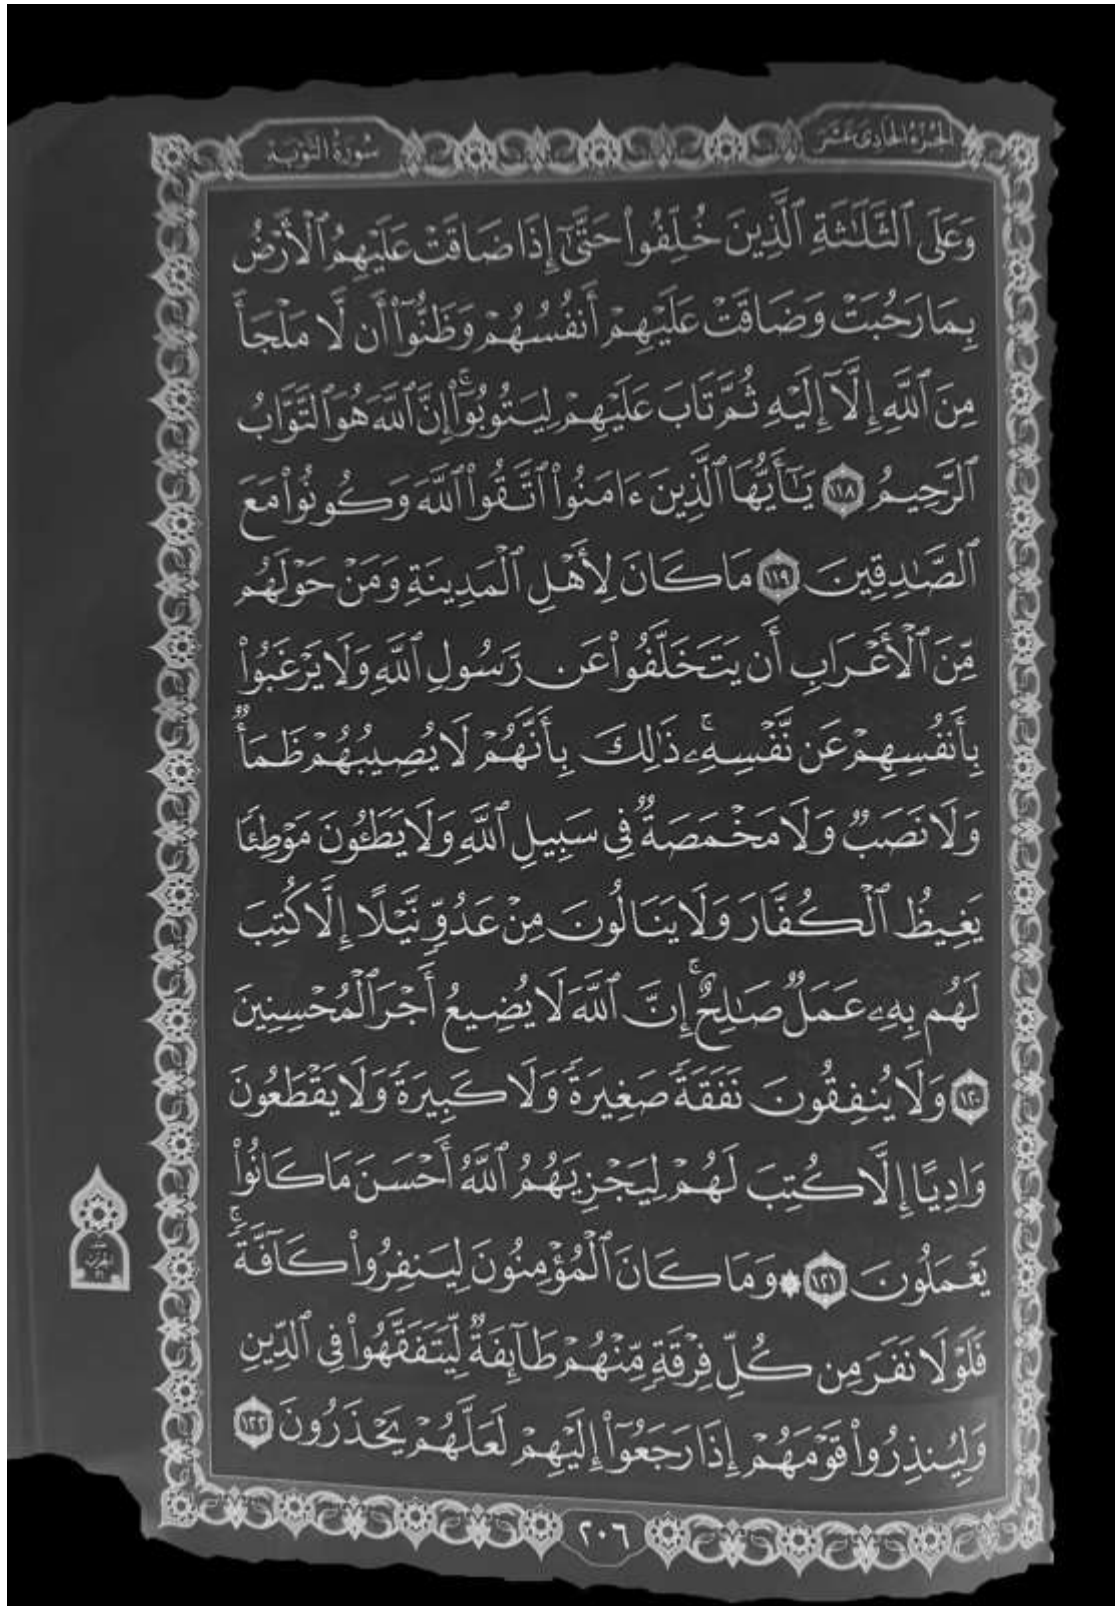 الجزء الحادي عشر
سورة التوبة
وَعَلَى ٱلثَّلَٰثَةِ ٱلَّذِينَ خُلِّفُوا۟ حَتَّىٰٓ إِذَا ضَاقَتْ عَلَيْهِمُ ٱلْأَرْضُ
بِمَا رَحُبَتْ وَضَاقَتْ عَلَيْهِمْ أَنفُسُهُمْ وَظَنُّوٓا۟ أَن لَّا مَلْجَأَ
مِنَ ٱللَّهِ إِلَّآ إِلَيْهِ ثُمَّ تَابَ عَلَيْهِمْ لِيَتُوبُوٓا۟ ۚ إِنَّ ٱللَّهَ هُوَ ٱلتَّوَّابُ
ٱلرَّحِيمُ ١١٨ يَٰٓأَيُّهَا ٱلَّذِينَ ءَامَنُوا۟ ٱتَّقُوا۟ ٱللَّهَ وَكُونُوا۟ مَعَ
ٱلصَّٰدِقِينَ ١١٩ مَا كَانَ لِأَهْلِ ٱلْمَدِينَةِ وَمَنْ حَوْلَهُم
مِّنَ ٱلْأَعْرَابِ أَن يَتَخَلَّفُوا۟ عَن رَّسُولِ ٱللَّهِ وَلَا يَرْغَبُوا۟
بِأَنفُسِهِمْ عَن نَّفْسِهِۦ ۚ ذَٰلِكَ بِأَنَّهُمْ لَا يُصِيبُهُمْ ظَمَأٌ
وَلَا نَصَبٌ وَلَا مَخْمَصَةٌ فِى سَبِيلِ ٱللَّهِ وَلَا يَطَـُٔونَ مَوْطِئًا
يَغِيظُ ٱلْكُفَّارَ وَلَا يَنَالُونَ مِنْ عَدُوٍّ نَّيْلًا إِلَّا كُتِبَ
لَهُم بِهِۦ عَمَلٌ صَٰلِحٌ ۚ إِنَّ ٱللَّهَ لَا يُضِيعُ أَجْرَ ٱلْمُحْسِنِينَ
١٢٠ وَلَا يُنفِقُونَ نَفَقَةً صَغِيرَةً وَلَا كَبِيرَةً وَلَا يَقْطَعُونَ
وَادِيًا إِلَّا كُتِبَ لَهُمْ لِيَجْزِيَهُمُ ٱللَّهُ أَحْسَنَ مَا كَانُوا۟
يَعْمَلُونَ ١٢١ ۞ وَمَا كَانَ ٱلْمُؤْمِنُونَ لِيَنفِرُوا۟ كَآفَّةً ۚ
فَلَوْلَا نَفَرَ مِن كُلِّ فِرْقَةٍ مِّنْهُمْ طَآئِفَةٌ لِّيَتَفَقَّهُوا۟ فِى ٱلدِّينِ
وَلِيُنذِرُوا۟ قَوْمَهُمْ إِذَا رَجَعُوٓا۟ إِلَيْهِمْ لَعَلَّهُمْ يَحْذَرُونَ ١٢٢
٢٠٦